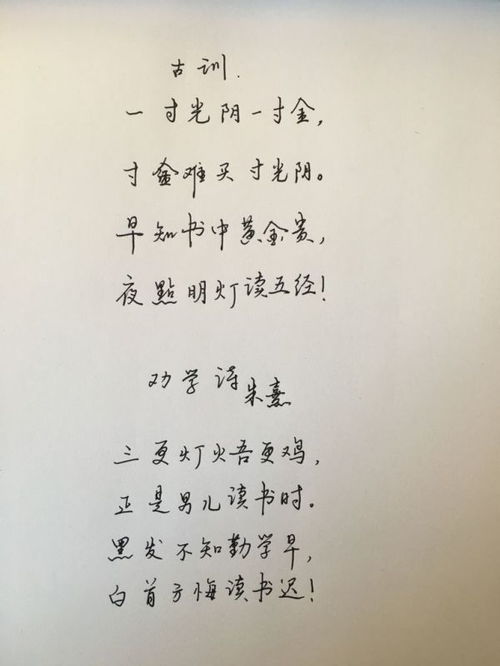 古训.
一寸光阴一寸金,
寸金难买寸光阴。
早知书中黄金贵,
夜點明灯读五经!
劝学诗 朱熹
三更灯火吾更鸡,
正是男儿读书时。
黑发不知勤学早,
白首方悔读书迟!